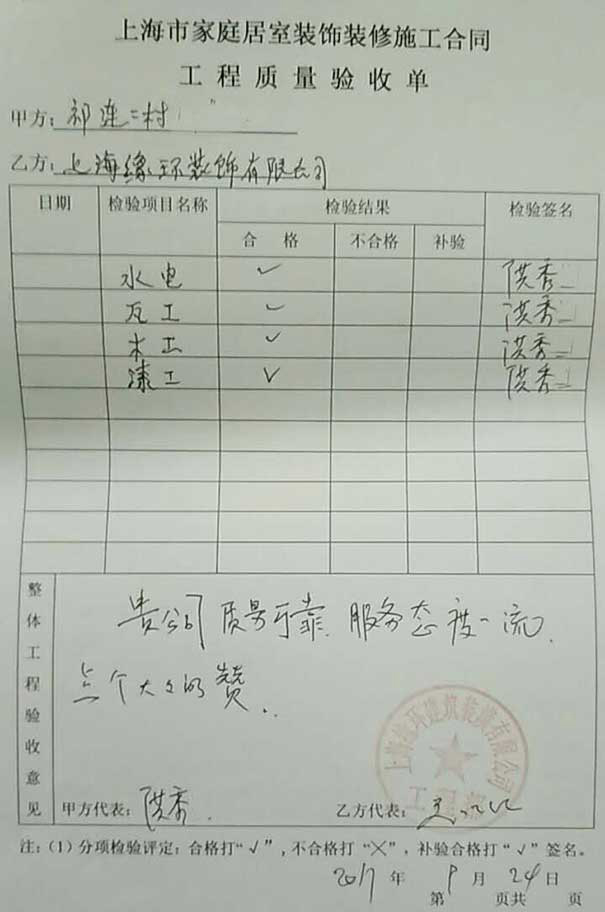 上海市家庭居室装饰装修施工合同
工程质量验收单
甲方：祁连二村
乙方：上海缘环装饰有限公司
日期 检验项目名称 检验结果 检验签名
合格 不合格 补验
水电 ✓ 洪秀
瓦工 ✓ 洪秀
木工 ✓ 洪秀
漆工 ✓ 洪秀
整体工程验收意见
贵公司质量可靠 服务态度一流.
点个大大的赞..
甲方代表：洪秀.
乙方代表：
注：（1）分项检验评定：合格打“√”，不合格打“╳”，补验合格打“√”签名。
2017年9月24日
第 页共 页